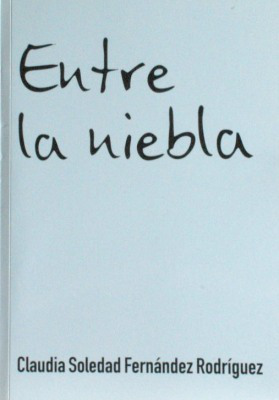 Entre
la niebla
Claudia Soledad Fernández Rodríguez